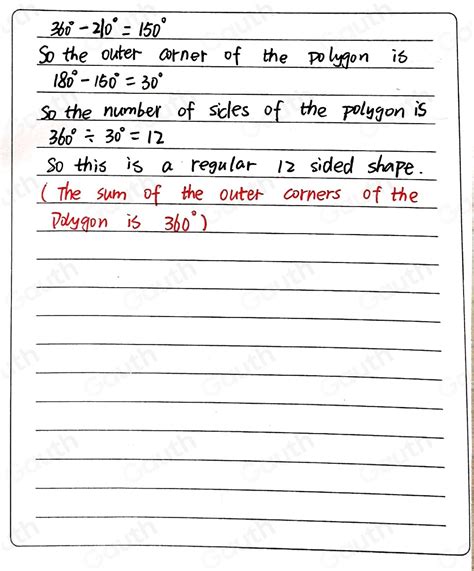 360° - 210° = 150°
So the outer corner of the polygon is
180° - 150° = 30°
So the number of sides of the polygon is
360° ÷ 30° = 12
So this is a regular 12 sided shape.
(The sum of the outer corners of the
Polygon is 360°)